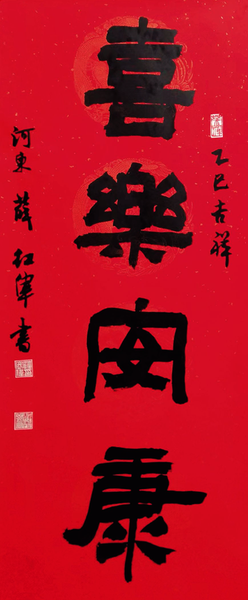 乙巳吉祥
喜樂安康
河東薛紅軍書